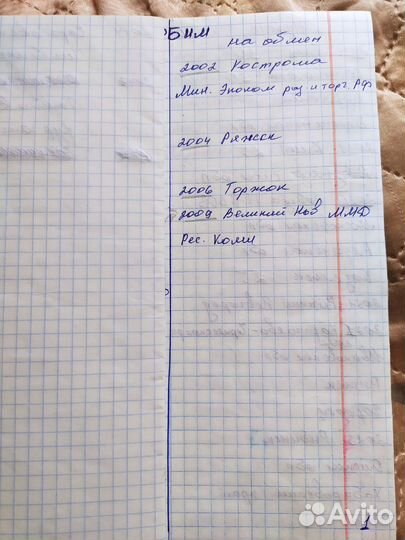 БИМ
на обмен
2002 Кострома
Мин. Эконом раз и торг. РФ
2004 Ряжск
2006 Торжок
2009 Великий Нов ММД
Рес. Коми
1
Avito